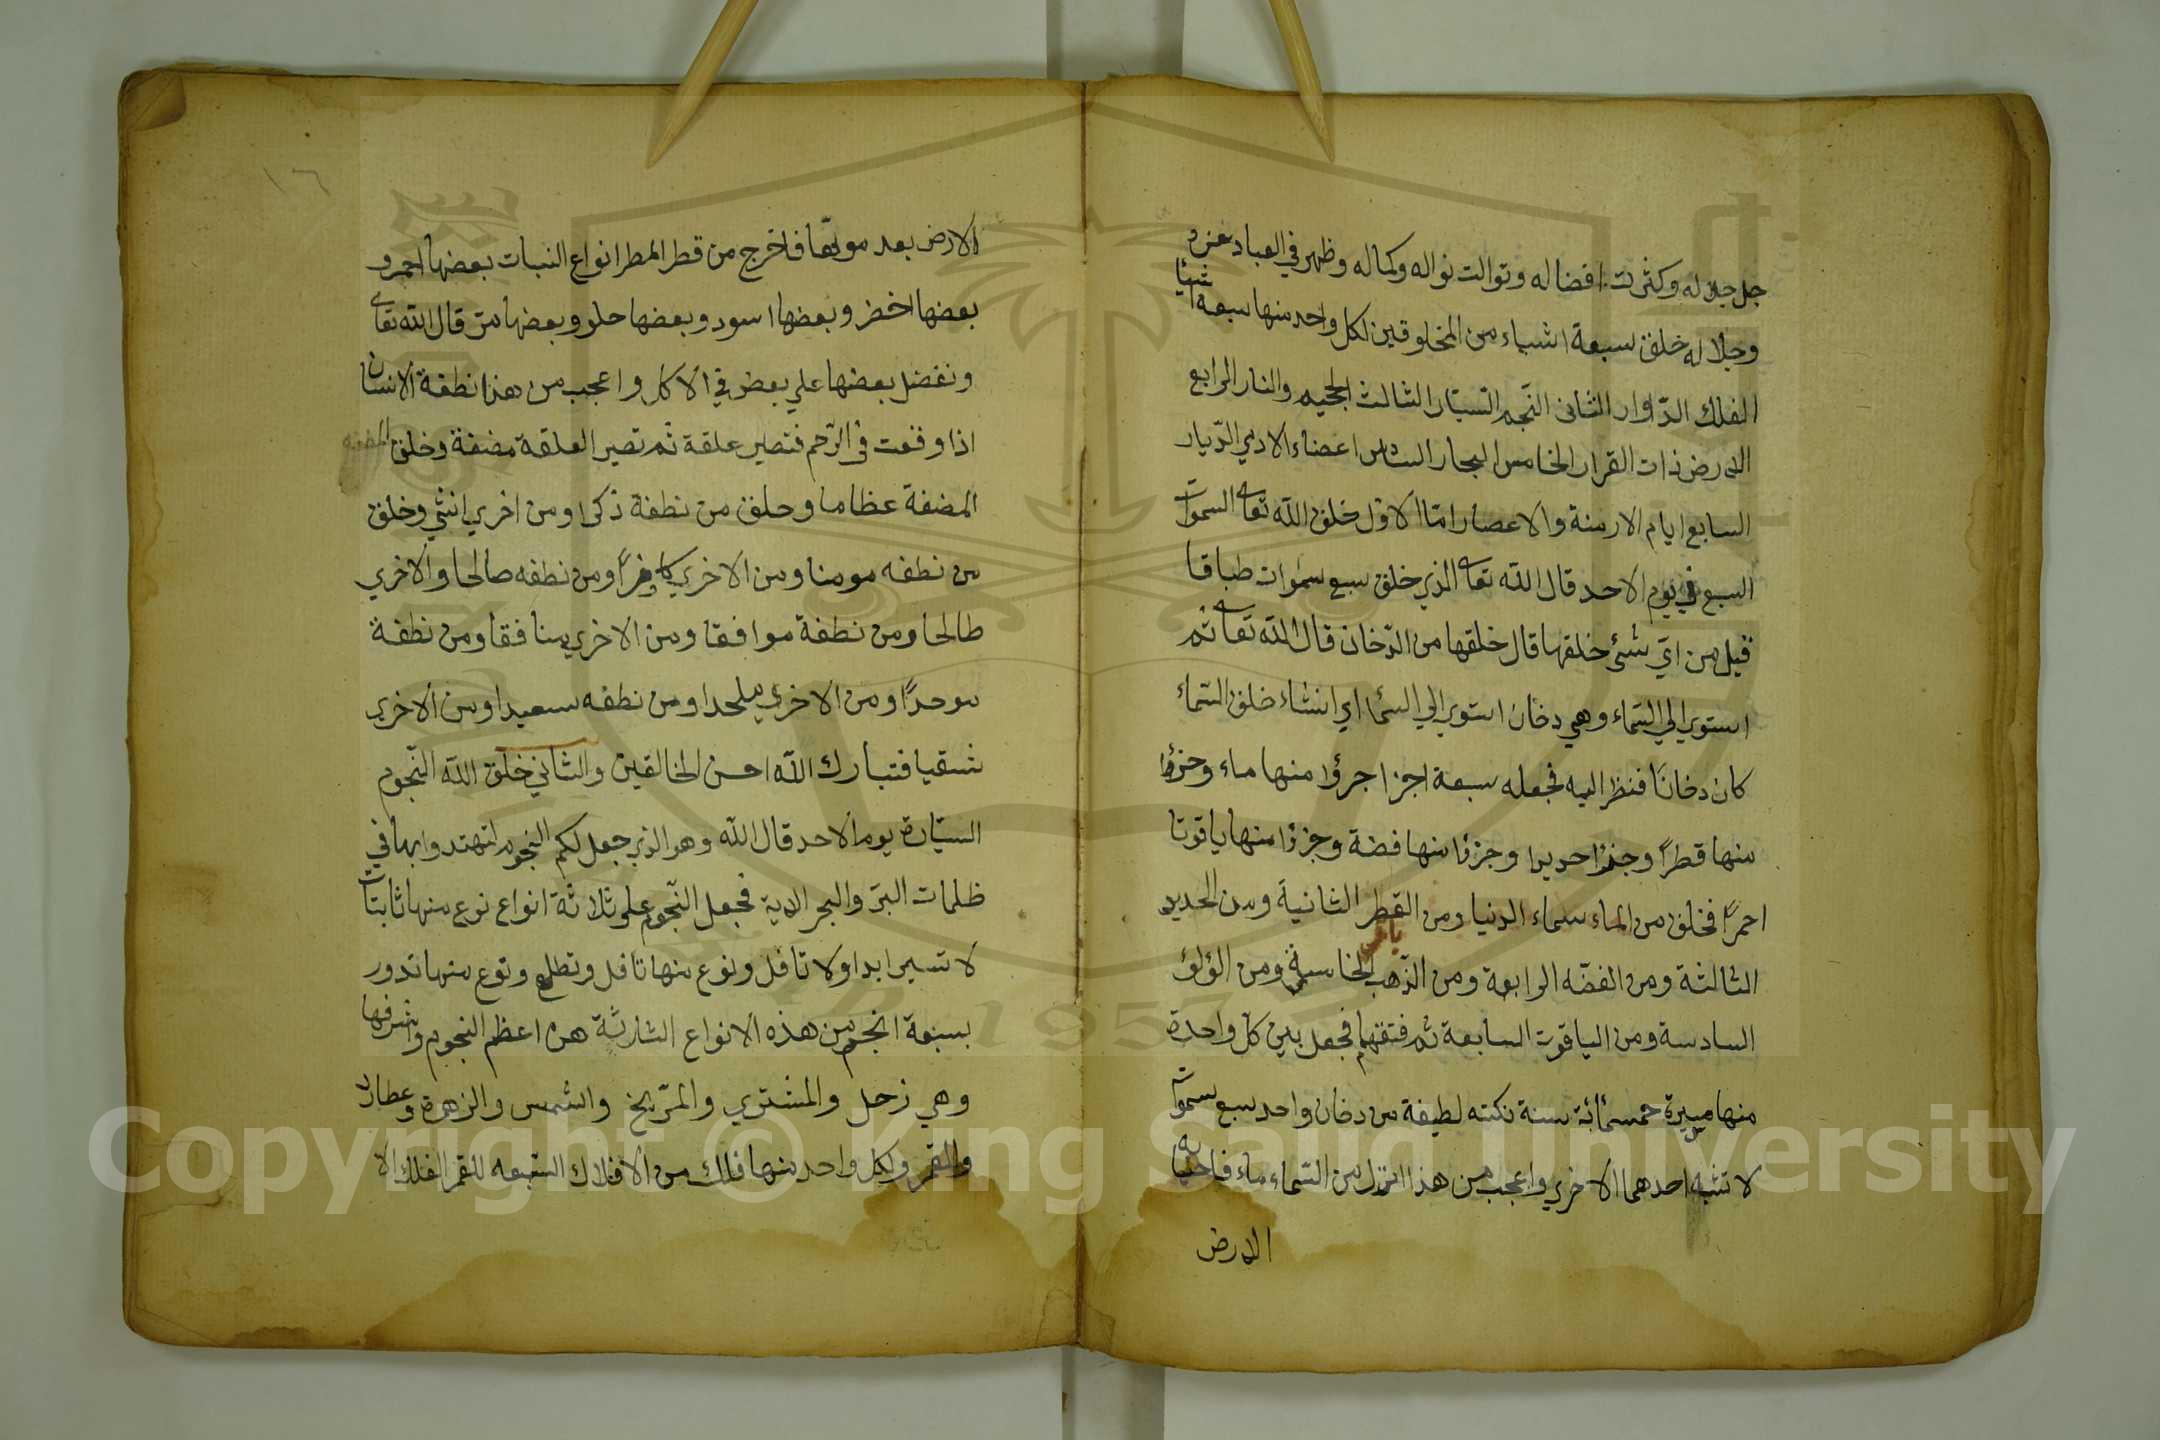 جل جلاله وكثرت افضاله وتوالت نواله وكماله وظهر في العباد عزه
وجلاله خلق سبعة اشياء من المخلوقين لكل واحد منها سبعة اشياء
الفلك الدّاوار الثاني النّجم السّيّار الثالث الجحيم والنار الرابع
الارض ذات القرار الخامس البحار السادس اعضاء الادمي الدّيار
السابع ايام الازمنة والاعصار امّا الاوّل خلق الله تعالى السموات
السبع في يوم الاحد قال الله تعالى الذي خلق سبع سموات طباقا
قيل من ايّ شئ خلقها قال خلقها من الدّخان قال الله تعالى ثم
استوي الي السّماء وهي دخان استوي الي السّما اي انشاء خلق السّماء
كان دخانًا فنظر اليه فجعله سبعة اجزا جزؤا منها ماء وجزؤا
منها قطرًا وجزؤا حديدا وجزؤا منها فضة وجزؤا منها ياقوتا
احمرًا فخلق من الماء سماء الدنيا ومن القطر الثانية ومن الحديد
الثالثة ومن الفضّه الرابعة ومن الذّهب الخامسة ومن الؤلؤ
السادسة ومن الياقوت السابعة ثم فتقهم فجعل بين كل واحدة
منها مسيرة خمسمائة سنة نكته لطيفة من دخان واحد سبع سموات
لا تشبه احدهما الاخري واعجب من هذا انزل من السّماء ماء فاحيا به
الارض
١٦
الارض بعد موتها فاخرج من قطر المطر انواع النبات بعضها احمر و
بعضها اخضر وبعضها اسود وبعضها حلو وبعضها مرّ قال الله تعالى
ونفضل بعضها علي بعض في الاكل واعجب من هذا نطفة الانسان
اذا وقعت في الرّحم فتصير علقة ثم تصير العلقة مضغة وخلق المضغه
المضغة عظاما وخلق من نطفة ذكرا ومن اخري انثي وخلق
من نطفه مومنا ومن الاخري كافرًا ومن نطفه صالحا والاخري
طالحا ومن نطفة موافقا ومن الاخري منافقا ومن نطفة
موحدًا ومن الاخري ملحدا ومن نطفه سعيدا ومن الاخري
شقيا فتبارك الله احسن الخالقين والثاني خلق الله النّجوم
السيّارة يوم الاحد قال الله وهو الذي جعل لكم النجوم لتهتدوا بها في
ظلمات البرّ والبحر الاية فجعل النّجوم علي ثلاثة انواع نوع منها ثابتات
لا تسير ابدا ولا تافل ونوع منها تافل وتطلع ونوع منها تدور
بسبعة انجم من هذه الانواع الثلاثة هن اعظم النجوم واشرفها
وهي زحل والمشتري والمرّيخ والشمس والزهرة وعطارد
والقمر ولكل واحد منها فلك من الافلاك السّبعه للقمر الفلك الا
Copyright © King Saud University
1957